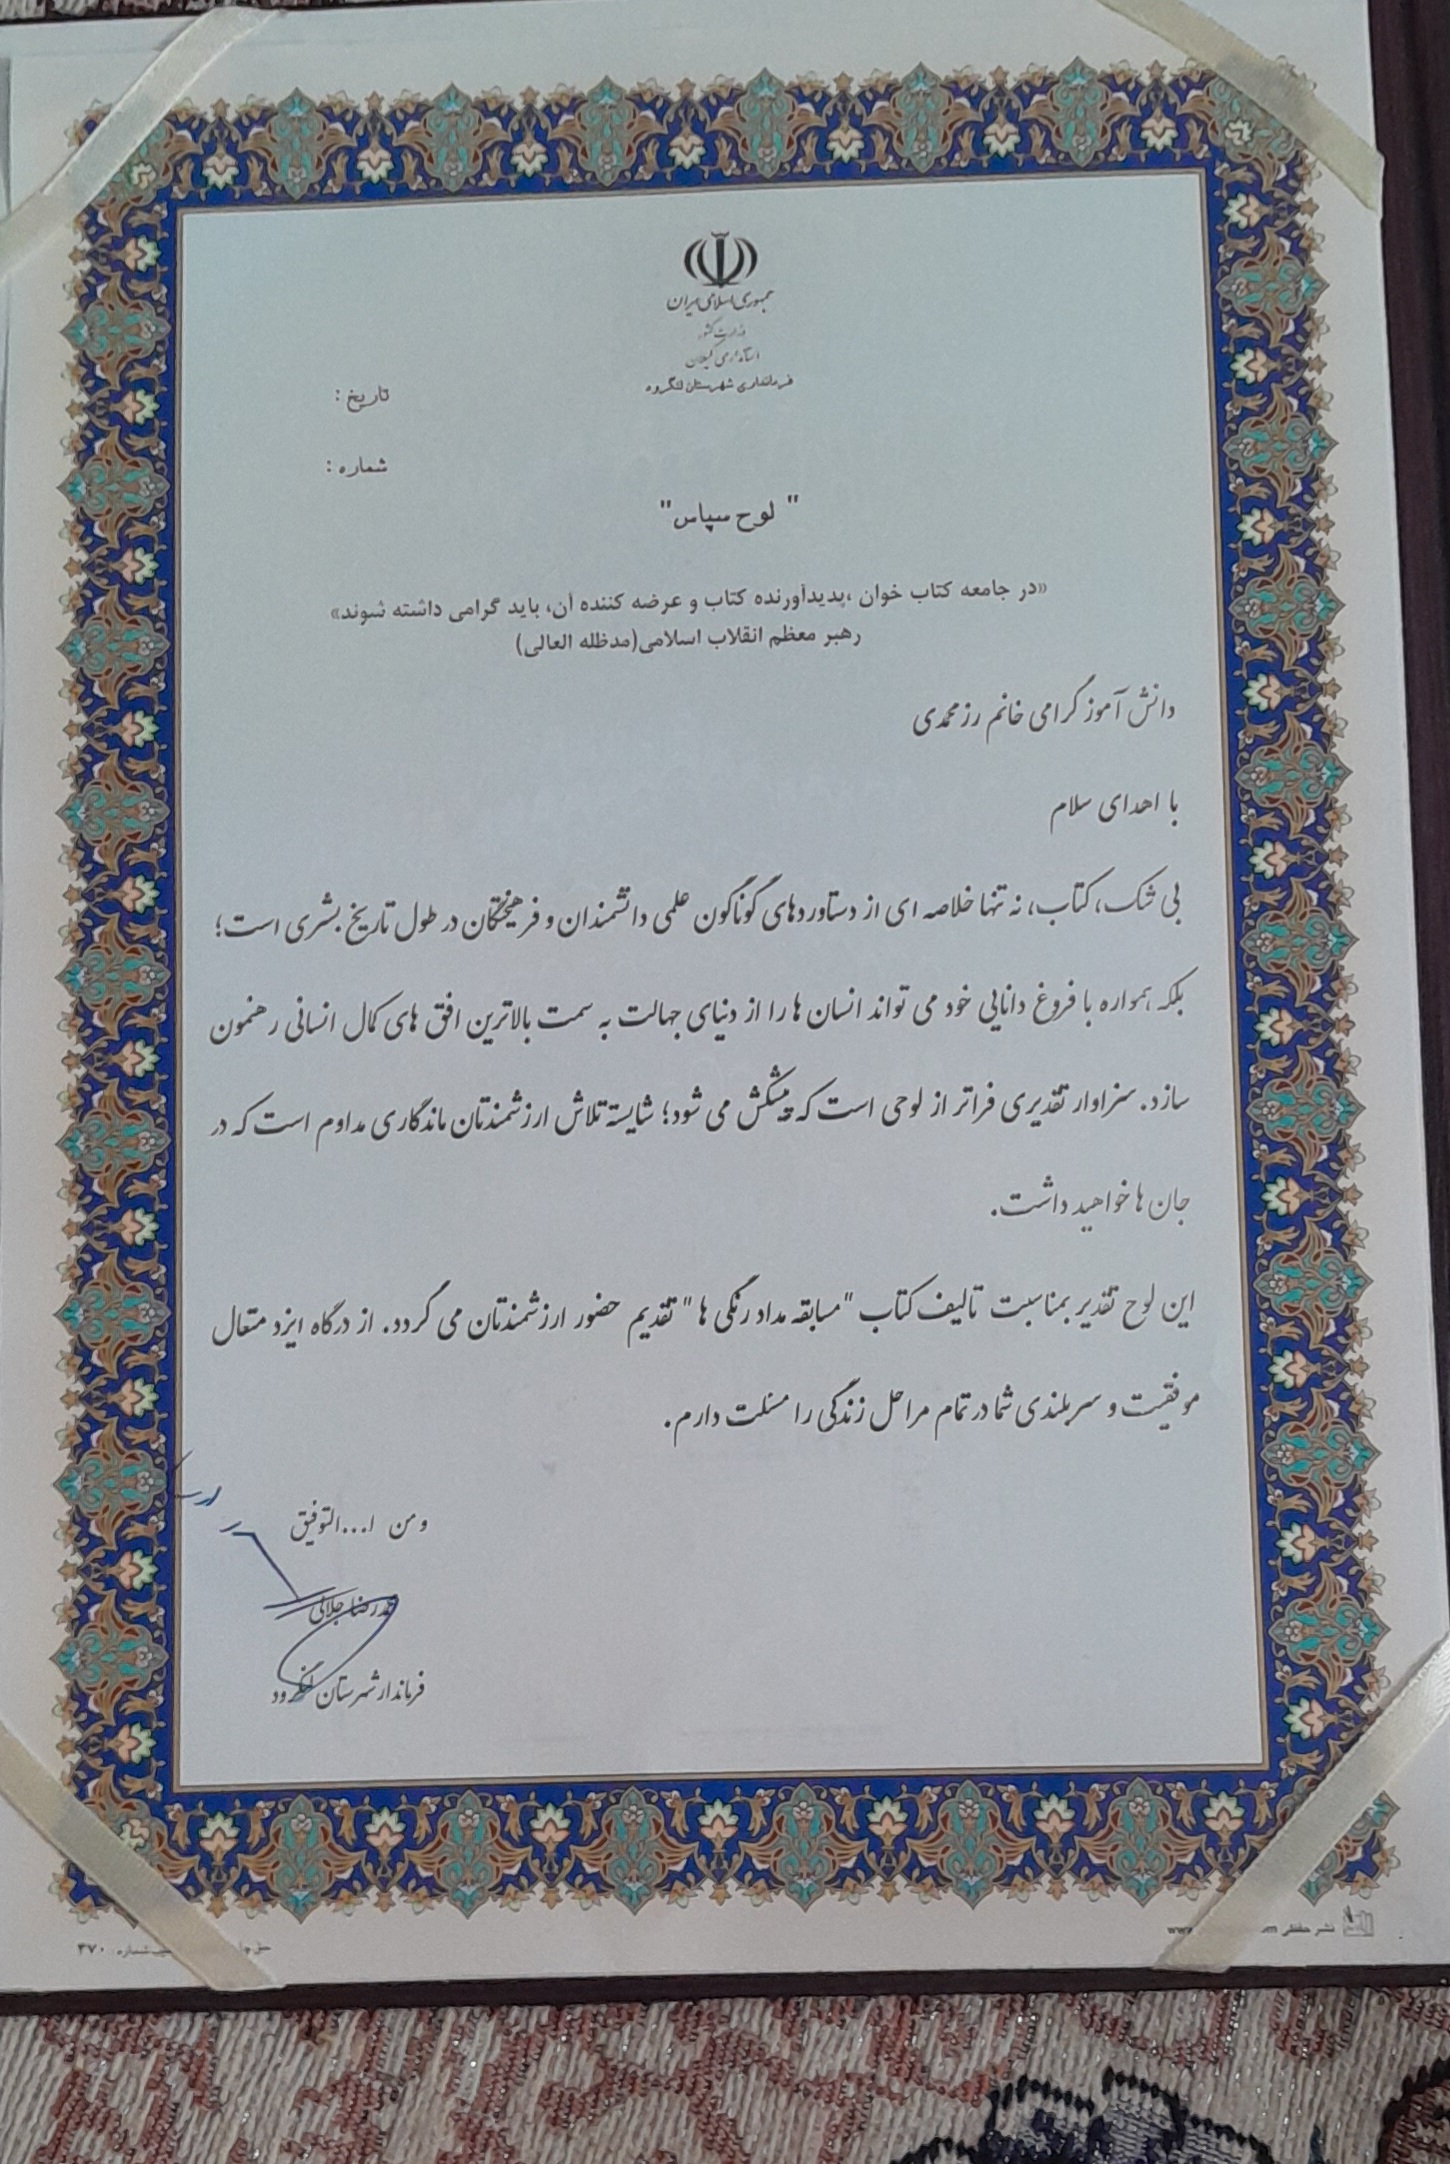 جمهوری اسلامی ایران
وزارت کشور
استانداری گیلان
فرمانداری شهرستان لنگرود
تاریخ :
شماره :
" لوح سپاس"
«در جامعه کتاب خوان ،پدیدآورنده کتاب و عرضه کننده آن، باید گرامی داشته شوند»
رهبر معظم انقلاب اسلامی(مدظله العالی)
دانش آموز گرامی خانم رزمحمدی
با اهدای سلام
بی شک، کتاب، نه تنها خلاصه ای از دستاوردهای گوناگون علمی دانشمندان و فرهیختگان در طول تاریخ بشری است؛
بلکه همواره با فروغ دانایی خود می تواند انسان ها را از دنیای جهالت به سمت بالاترین افق های کمال انسانی رهنمون
سازد. سزاوار تقدیری فراتر از لوحی است که پیشکش می شود؛ شایسته تلاش ارزشمندتان ماندگاری مداوم است که در
جان ها خواهید داشت.
این لوح تقدیر بمناسبت تالیف کتاب "مسابقه مداد رنگی ها" تقدیم حضور ارزشمندتان می گردد. از درگاه ایزد متعال
موفقیت و سربلندی شما در تمام مراحل زندگی را مسئلت دارم.
و من ا...التوفیق
جلالی
فرماندار شهرستان لنگرود
نشر حفظی
شماره ۳۷۰